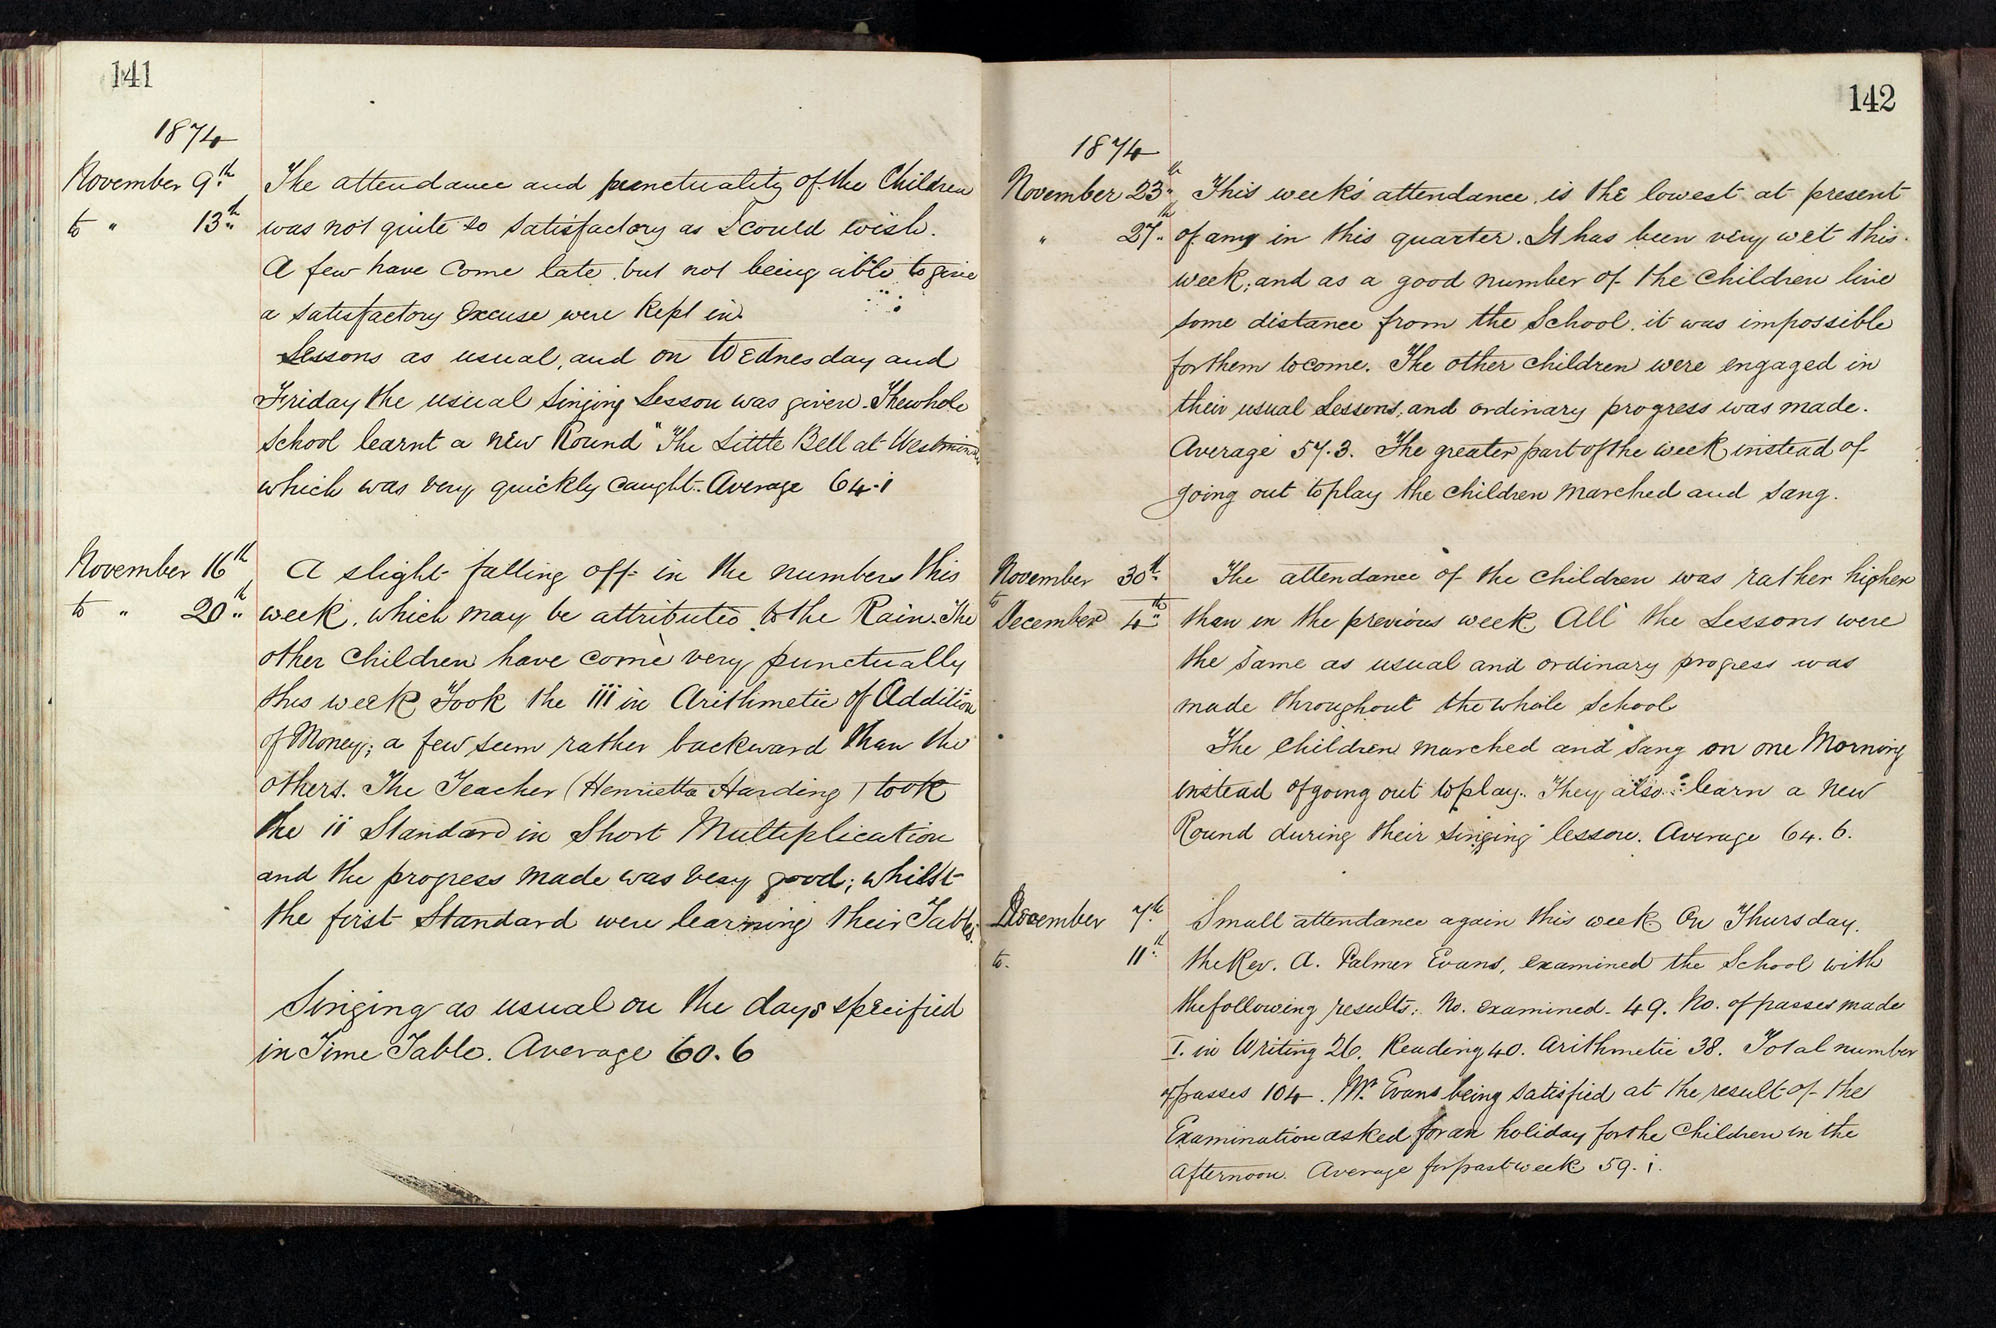 141
1874
November 9th The attendance and punctuality of the Children
to " 13th was not quite so satisfactory as I could wish.
A few have come late, but not being able to give
a satisfactory excuse were kept in.
Lessons as usual, and on Wednesday and
Friday the usual Singing Lesson was given. The whole
School learnt a new Round "The Little Bell at Westminster
which was very quickly caught. Average 64.1
November 16th A slight falling off in the numbers this
to " 20th week, which may be attributed to the Rain. The
other children have come very punctually
this week Took the iii in Arithmetic of Addition
of Money; a few seem rather backward than the
others. The Teacher (Henrietta Harding) took
the ii Standard in Short Multiplication
and the progress made was very good; whilst
the first Standard were learning their Tables.
Singing as usual on the days specified
in Time Table. Average 60.6
142
1874
November 23rd This week's attendance is the lowest at present
" 27th of any in this quarter. It has been very wet this
week; and as a good number of the children live
some distance from the School, it was impossible
for them to come. The other children were engaged in
their usual Lessons, and ordinary progress was made.
Average 57.3. The greater part of the week instead of
going out to play the children marched and sang.
November 30th The attendance of the children was rather higher
to
December 4th than in the previous week All the Lessons were
the same as usual and ordinary progress was
made throughout the whole School
The children marched and sang on one Morning
instead of going out to play. They also learn a new
Round during their singing lesson. Average 64.6.
December 7th Small attendance again this week On Thursday,
to. 11th the Rev. A. Palmer Evans, examined the School with
the following results: No. examined - 49. No. of passes made
I. in Writing 26. Reading 40. Arithmetic 38. Total number
of passes 104. Mr. Evans being satisfied at the result of the
Examination asked for an holiday for the Children in the
afternoon. Average for past week 59.1.